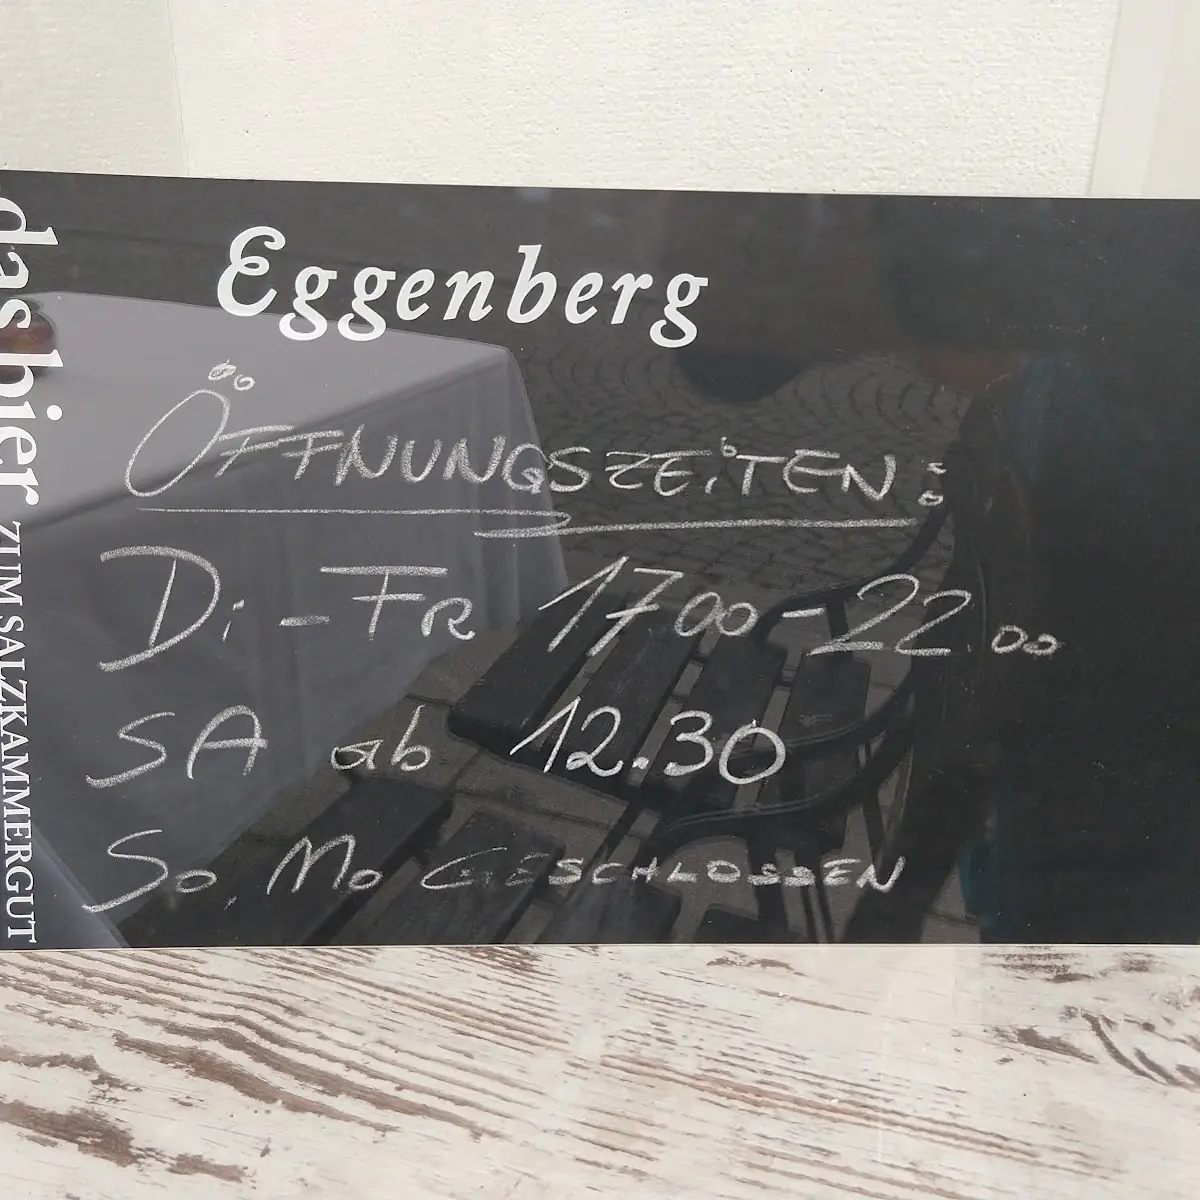 Eggenberg
das bier ZUM SALZKAMMERGUT
ÖFFNUNGSZEiTEN:
Di - FR 17 00 - 22.00
SA ab 12.30
So, Mo GESCHLOSSEN